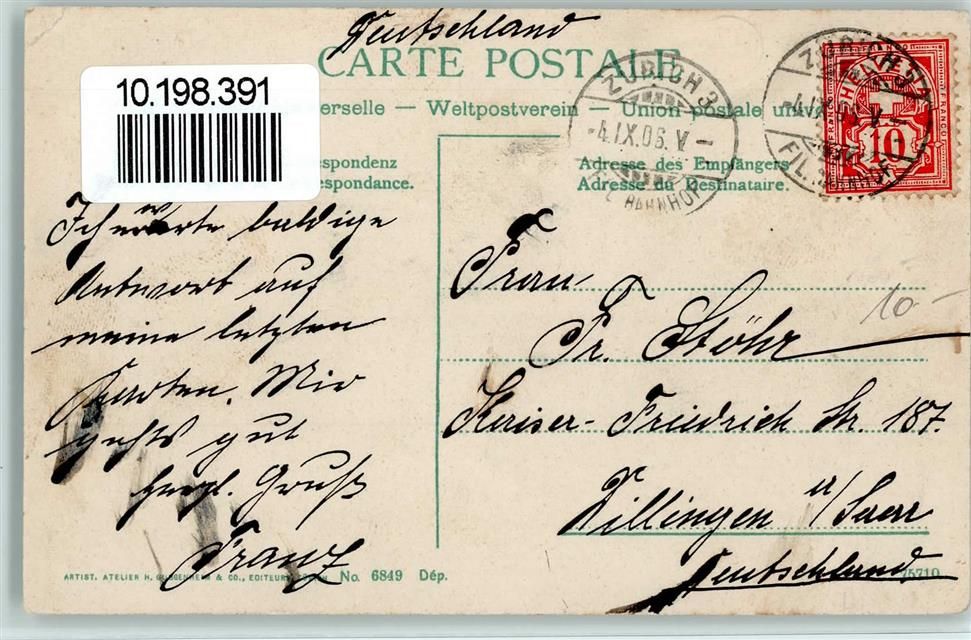 Deutschland
CARTE POSTALE
10.198.391
erselle — Weltpostverein — Union postale univ
espondenz
spondance.
Adresse des Empfängers
Adresse du Destinataire.
ZÜRICH 3
-4.IX.06.V-
FIL. BAHNHOF
ZÜRICH 3
-4.IX.06.V-
FIL. BAHNHOF
HELVETIA
FRANCO
10
Ich erwarte baldige
Antwort auf
meine letzten
Karten. Mir
gehts gut
herzl. Gruß
Franz
Frau
Fr. Stöhr
Kaiser-Friedrich Str. 187.
Dillingen a/Saar
Deutschland
10-
ARTIST. ATELIER H. GUGGENHEIM & CO., EDITEURS, No. 6849 Dép.
75710